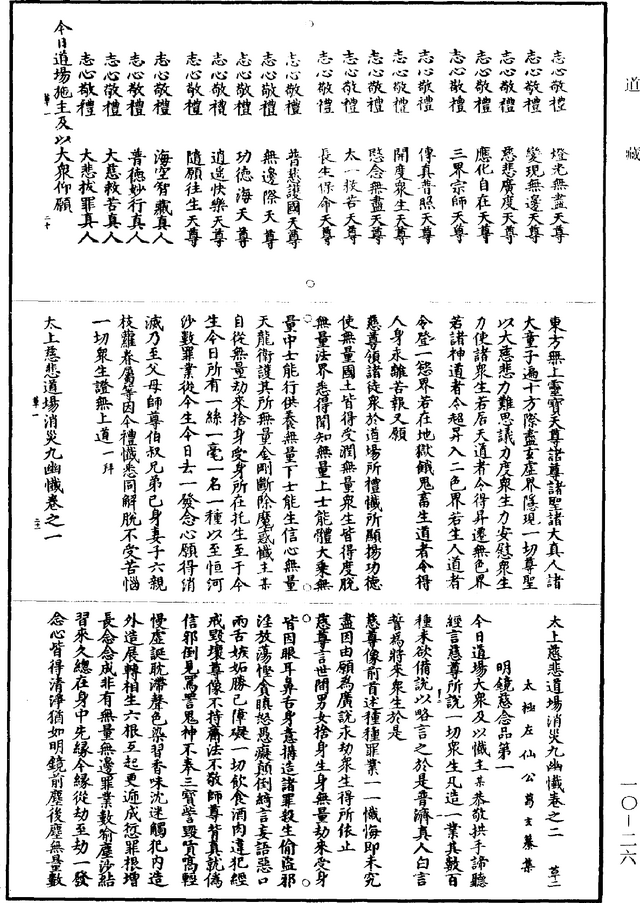 道藏
志心敬禮 燈光無盡天尊
志心敬禮 變現無邊天尊
志心敬禮 慈悲廣度天尊
志心敬禮 應化自在天尊
志心敬禮 三界宗師天尊
志心敬禮 傳真普照天尊
志心敬禮 開度衆生天尊
志心敬禮 愍念無盡天尊
志心敬禮 太一救苦天尊
志心敬禮 長生保命天尊
志心敬禮 普慈護國天尊
志心敬禮 無邊際天尊
志心敬禮 功德海天尊
志心敬禮 逍遙快樂天尊
志心敬禮 隨願往生天尊
志心敬禮 海空智藏真人
志心敬禮 普德妙行真人
志心敬禮 大慈救苦真人
志心敬禮 大悲拔罪真人
今日道場施主及以大衆仰願
東方無上靈寶天尊諸尊諸聖諸大真人諸
大童子遍十方際盡玄虛界隱現一切尊聖
以大慈悲力難思議力度衆生力安慰衆生
力使諸衆生若居天道者令得昇遷無色界
若諸神道者令超昇入二色界若生人道者
令登一慾界若在地獄餓鬼畜生道者令得
人身永離苦報又願
慈尊領諸徒衆於道場所禮懺所顯揚功德
使無量國土皆得受潤無量衆生皆得度脫
無量法界悉得聞知無量上士能體大乘無
量中士能行供養無量下士能生信心無量
天龍衛護其所無量金剛斷除魔惑懺主某
自從無量劫來捨身受身所在托生至于今
生今日所有一絲一毫一名一種以至恒河
沙數罪業從今生今日去一發念心願得消
滅乃至父母師尊伯叔兄弟己身妻子六親
枝蘿眷屬等因今禮懺悉同解脫不受苦惱
一切衆生證無上道 一拜
太上慈悲道場消災九幽懺卷之一
太上慈悲道場消災九幽懺卷之二 草二
太極左仙公葛玄纂集
明鏡慈念品第一
今日道場大衆及以懺主某恭敬拱手諦聽
經言慈尊所說一切衆生凡造一業其數百
種未欲備說以略言之於是普濟真人白言
誓為將來衆生於是
慈尊像前首述種種罪業一一懺悔即未究
盡因由願為廣說永劫衆生得所依止
慈尊言世間男女捨身生身無量劫來受身
皆因眼耳鼻舌身意搆造諸罪殺生偷盜邪
淫放蕩慳貪瞋怒愚癡顛倒綺言妄語惡口
兩舌嫉妬勝己障礙一切飲食酒肉違犯經
戒毀壞尊像不持齋法不敬師尊背真就偽
信邪倒見罵詈鬼神不奉三寶訾毀賢高輕
慢虛誕耽滯聲色染習香味沈迷觸犯內造
外造展轉相生六根互起更遞成愆罪根增
長念念成非有無量無邊罪業數猶塵沙結
習來久總在身中先緣今緣從劫至劫一發
念心皆得清淨猶如明鏡前塵後塵無量數
一〇—二六